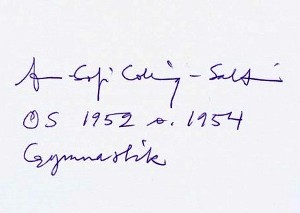 Ann-Sofi Colling-Saltin
OS 1952 o. 1954
Gymnastik